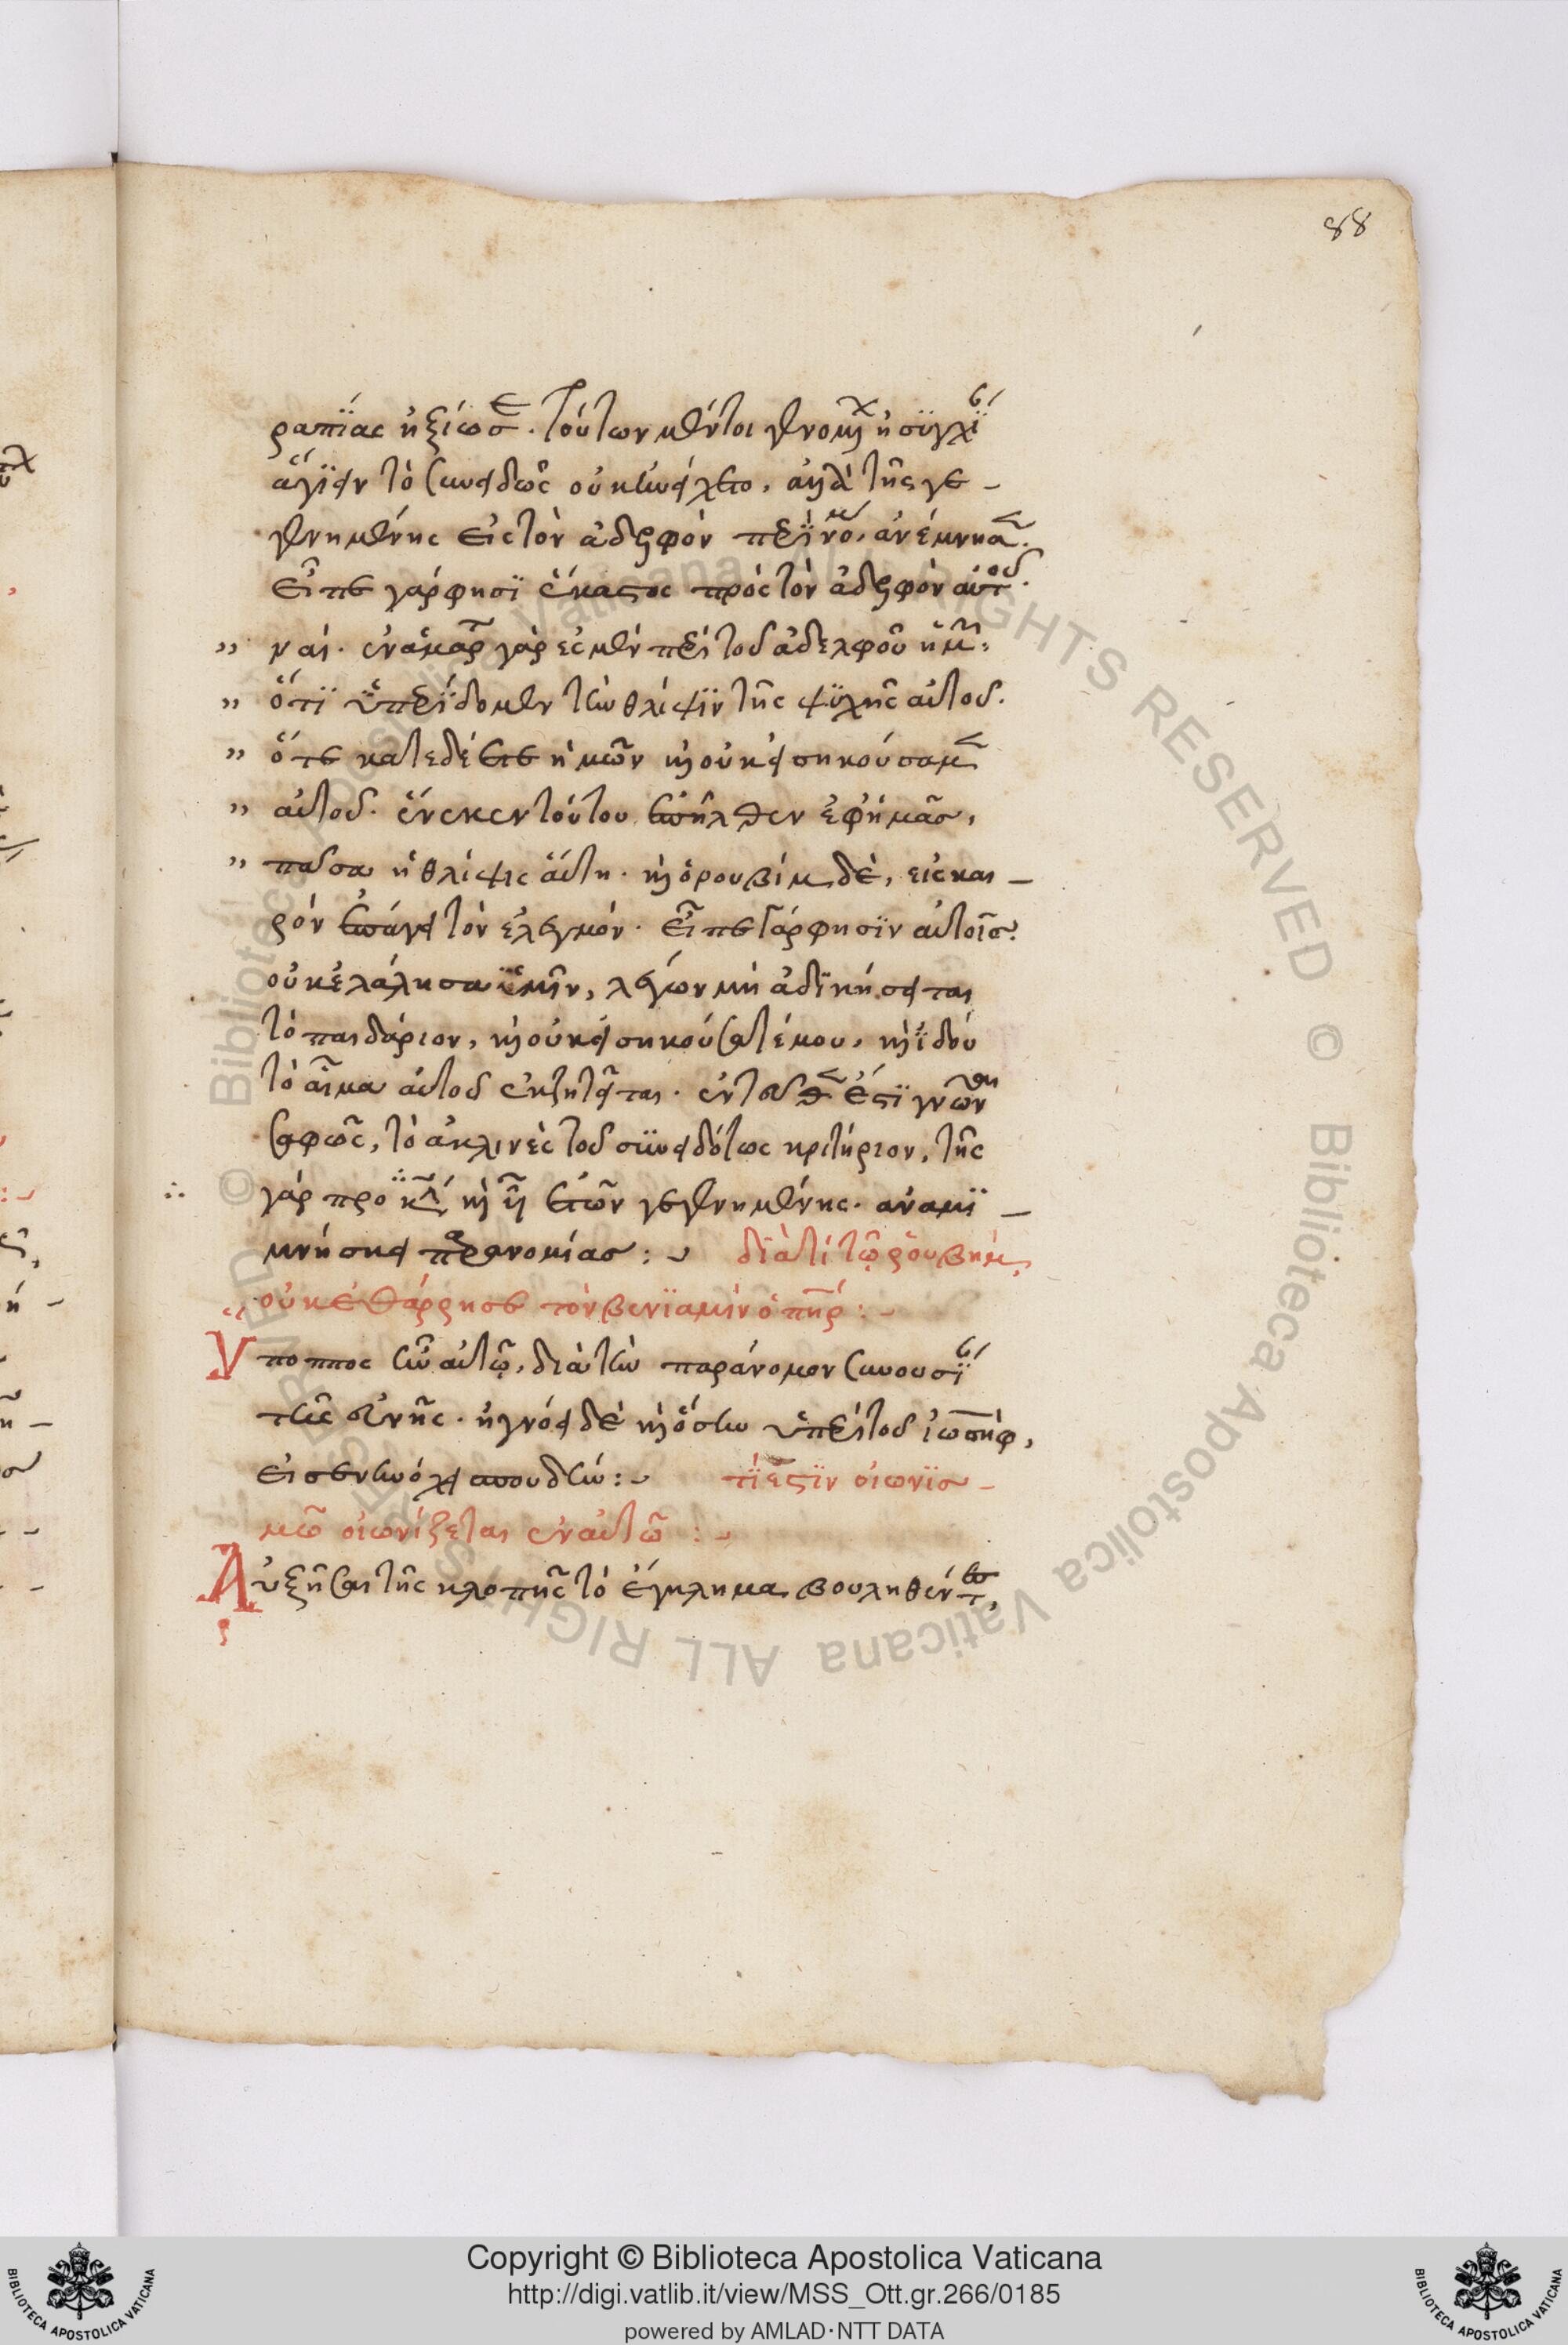 88
ραπείας ἠξίωσε. τούτων μέντοι γενομένων ἡσυχῆ
ἄγειν τὸ συνειδὸς οὐκ ἠνείχετο, ἀλλὰ τῆς γε
γενημένης εἰς τὸν ἀδελφὸν παρανόμ ἀνέμνησαν.
εἶπε γάρ φησιν ἕκαστος πρὸς τὸν ἀδελφὸν αὐτοῦ.
ναί. ἐν ἁμαρτίαις γάρ ἐσμεν περὶ τοῦ ἀδελφοῦ ἡμῶν.
ὅτι ὑπερείδομεν τὴν θλίψιν τῆς ψυχῆς αὐτοῦ.
ὅτε κατεδέετο ἡμῶν καὶ οὐκ εἰσηκούσαμεν
αὐτοῦ. ἕνεκεν τούτου ἐπῆλθεν ἐφ' ἡμᾶς,
πᾶσα ἡ θλίψις αὕτη. καὶ ὁ ρουβὶμ δὲ, εἰς και
ρὸν ἐπάγει τὸν ἔλεγχον. εἶπε γάρ φησιν αὐτοῖς.
οὐκ ἐλάλησα ὑμῖν, λέγων μὴ ἀδικήσηται
τὸ παιδάριον, καὶ οὐκ εἰσηκούσατέ μου, καὶ ἰδοὺ
τὸ αἷμα αὐτοῦ ἐκζητεῖται. ἐντεῦθεν ἔστι γνῶναι
σαφῶς, τὸ ἀκλινὲς τοῦ συνειδότος κριτήριον, τῆς
γὰρ πρὸ κ καὶ β ἐτῶν γεγενημένης. ἀναμι
μνήσκει παρανομίας :~ διατί τῷ ρουβὴμ
οὐκ ἐθάρρησε τὸν βενιαμὶν ὁ πατήρ :~
Ὕποπτος ἦν αὐτῷ, διὰ τὴν παράνομον συνουσίαν
τῆς εὐνῆς. ἠγνόει δὲ καὶ ὅσην ὑπὲρ τοῦ ἰωσὴφ,
εἰσενηνόχει σπουδήν :~ τί ἐστιν οἰωνισ
μῷ οἰωνίζεται ἐν αὐτῷ :~
Αὐξῆσαι τῆς κλοπῆς τὸ ἔγκλημα βουληθέντες,
Copyright © Biblioteca Apostolica Vaticana
http://digi.vatlib.it/view/MSS_Ott.gr.266/0185
powered by AMLAD·NTT DATA
BIBLIOTECA APOSTOLICA VATICANA
BIBLIOTECA APOSTOLICA VATICANA